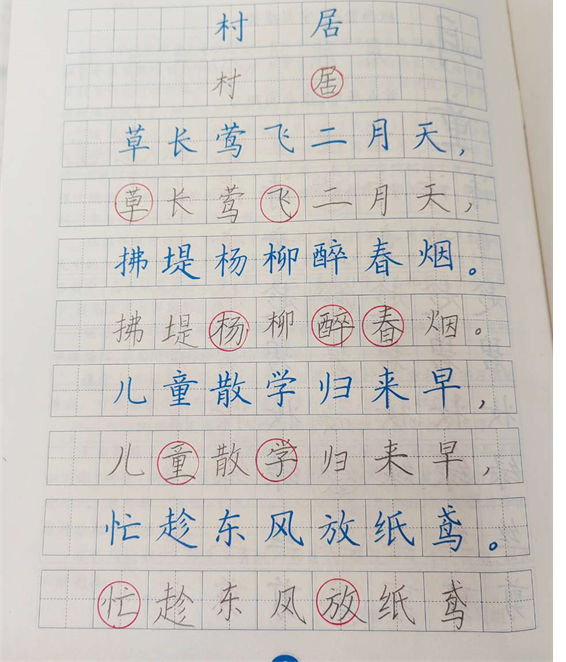 村居
村居
草长莺飞二月天，
草长莺飞二月天，
拂堤杨柳醉春烟。
拂堤杨柳醉春烟。
儿童散学归来早，
儿童散学归来早，
忙趁东风放纸鸢。
忙趁东风放纸鸢